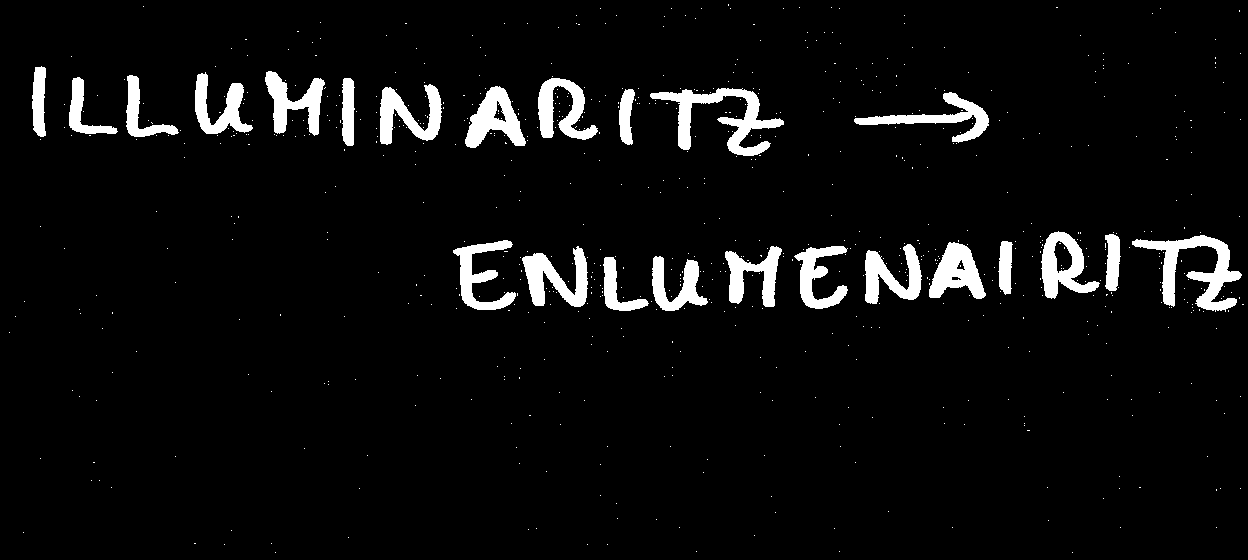 ILLUMINARITZ →
ENLUMENAIRITZ